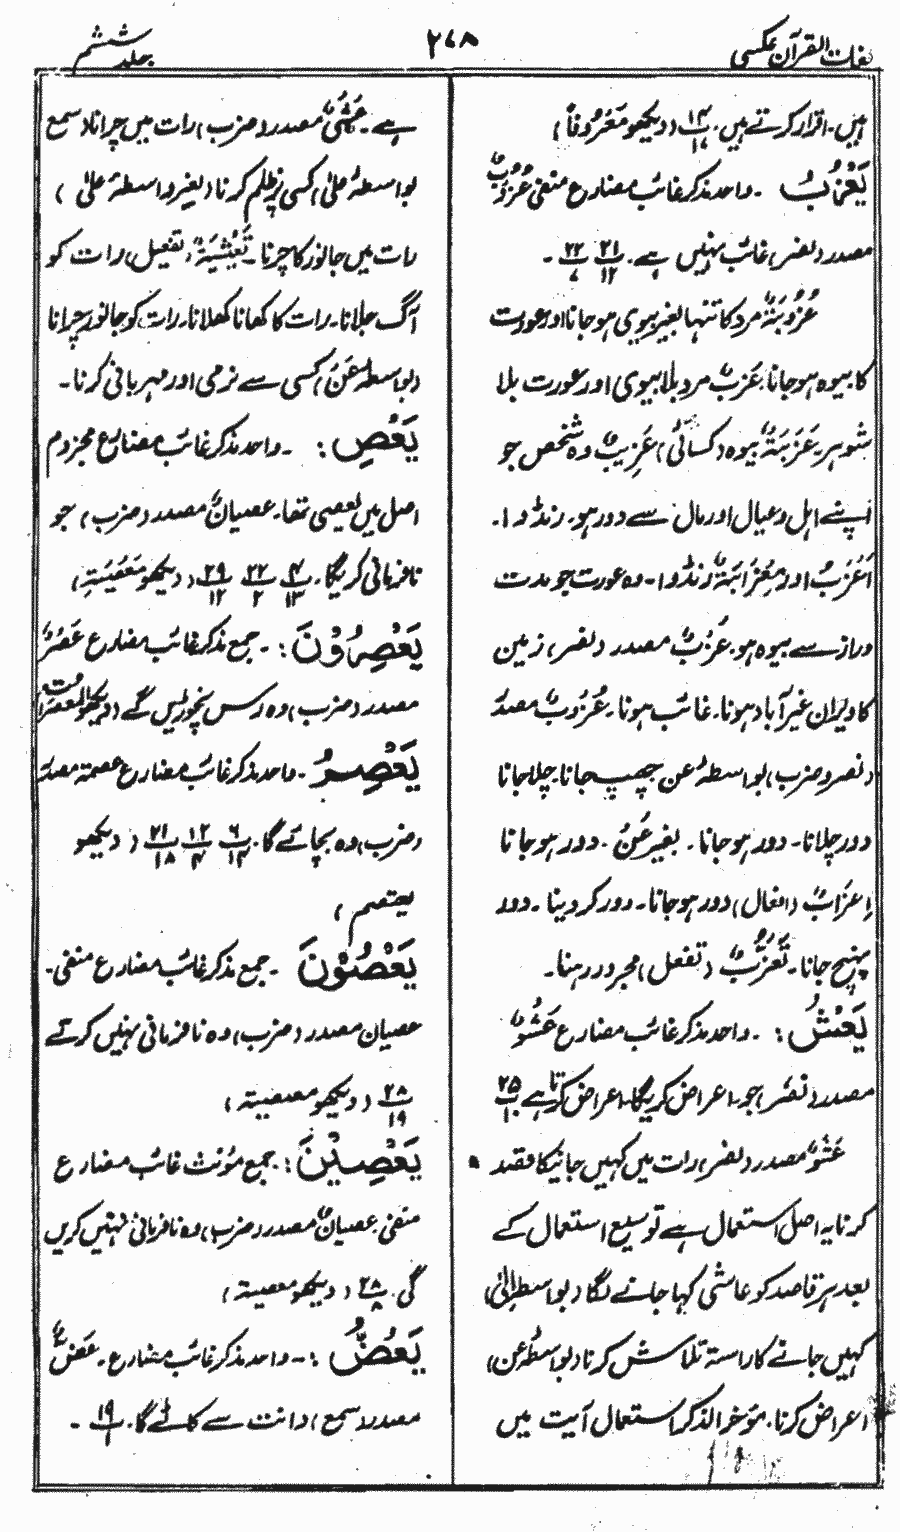 لغات القرآن عکسی
۲۷۸
جلد ششم
ہیں۔ اقرار کرتے ہیں۔ ۱۴/۱۰ (دیکھو مَعْرُوْفًا)
یَعْزُبُ ۔ واحد مذکر غائب مضارع منفی عُزُوْبٌ
مصدر (نصر) غائب نہیں ہے۔ ۲۱/۱۲ ۲۲/۷ ۔
عُزُوْبَۃٌ مرد کا تنہا بغیر بیوی ہو جانا اور عورت
کا بیوہ ہو جانا۔ عَزَبٌ مرد بلا بیوی اور عورت بلا
شوہر۔ عَزَبَۃٌ بیوہ (کسائی) عَزِیْبٌ وہ شخص جو
اپنے اہل و عیال اور مال سے دور ہو۔ رنڈوا۔
اَعْزَبُ اور مِعْزَابَۃٌ رنڈوا۔ وہ عورت جو مدت
دراز سے بیوہ ہو۔ عُزُبٌ مصدر (نصر) زمین
کا ویران غیر آباد ہونا۔ غائب ہونا۔ عُزُوْبٌ مصدر
(نصر و ضرب) بواسطۂ عن چھپ جانا۔ چلا جانا
دور چلانا۔ دور ہو جانا۔ بغیر عَنْ ۔ دور ہو جانا
اِعْزَابٌ (افعال) دور ہو جانا۔ دور کر دینا۔ دور
پہنچ جانا۔ تَعَزُّبٌ (تفعل) مجرد رہنا۔
یَعْشُ : ۔ واحد مذکر غائب مضارع عَشْوٌ
مصدر (نصر) جو۔ اعراض کریگا۔ اعراض کرتا ہے ۲۵/۱۰
عَشْوٌ مصدر (نصر) رات میں کہیں جانیکا قصد
کرنا یہ اصل استعمال ہے توسیع استعمال کے
بعد ہر قاصد کو عاشی کہا جانے لگا (بواسطہ اِلیٰ)
کہیں جانے کا راستہ تلاش کرنا (بواسطہ عن)
اعراض کرنا۔ مؤخر الذکر استعمال آیت میں
ہے۔ عَشْیٌ مصدر (ضرب) رات میں چرانا (سمع
بواسطہ علیٰ) کسی پر ظلم کرنا (بغیر واسطۂ علیٰ)
رات میں جانور کا چرنا۔ تَعْشِیَۃٌ (تفعیل) رات کو
آگ جلانا۔ رات کا کھانا کھلانا۔ رات کو جانور چرانا
(بواسطہ عَنْ) کسی سے نرمی اور مہربانی کرنا۔
یَعْصِ : ۔ واحد مذکر غائب مضارع مجزوم
اصل میں یعصی تھا۔ عصیانٌ مصدر (ضرب) جو
نافرمانی کریگا۔ ۴/۱۳ ۲۲/۲ ۲۹/۱۲ (دیکھو مَعْصِیَۃِ)
یَعْصِرُوْنَ : ۔ جمع مذکر غائب مضارع عَصْرٌ
مصدر (ضرب) وہ رس نچوڑیں گے (دیکھو المعصرات)
یَعْصِمُ ۔ واحد مذکر غائب مضارع عصمۃ مصدر
(ضرب) وہ بچائے گا۔ ۶/۱۴ ۱۲/۴ ۲۱/۱۸ (دیکھو
یعتصم)
یَعْصُوْنَ ۔ جمع مذکر غائب مضارع منفی۔
عصیان مصدر (ضرب) وہ نافرمانی نہیں کرتے
۲۸/۱۹ (دیکھو معصیۃ)
یَعْصِیْنَ : ۔ جمع مؤنث غائب مضارع
منفی۔ عصیانٌ مصدر (ضرب) وہ نافرمانی نہیں کریں
گی۔ ۲۸/۸ (دیکھو معصیۃ)
یَعَضُّ : ۔ واحد مذکر غائب مضارع۔ عَضٌّ
مصدر (سمع) دانت سے کاٹے گا۔ ۱۹/۱ ۔